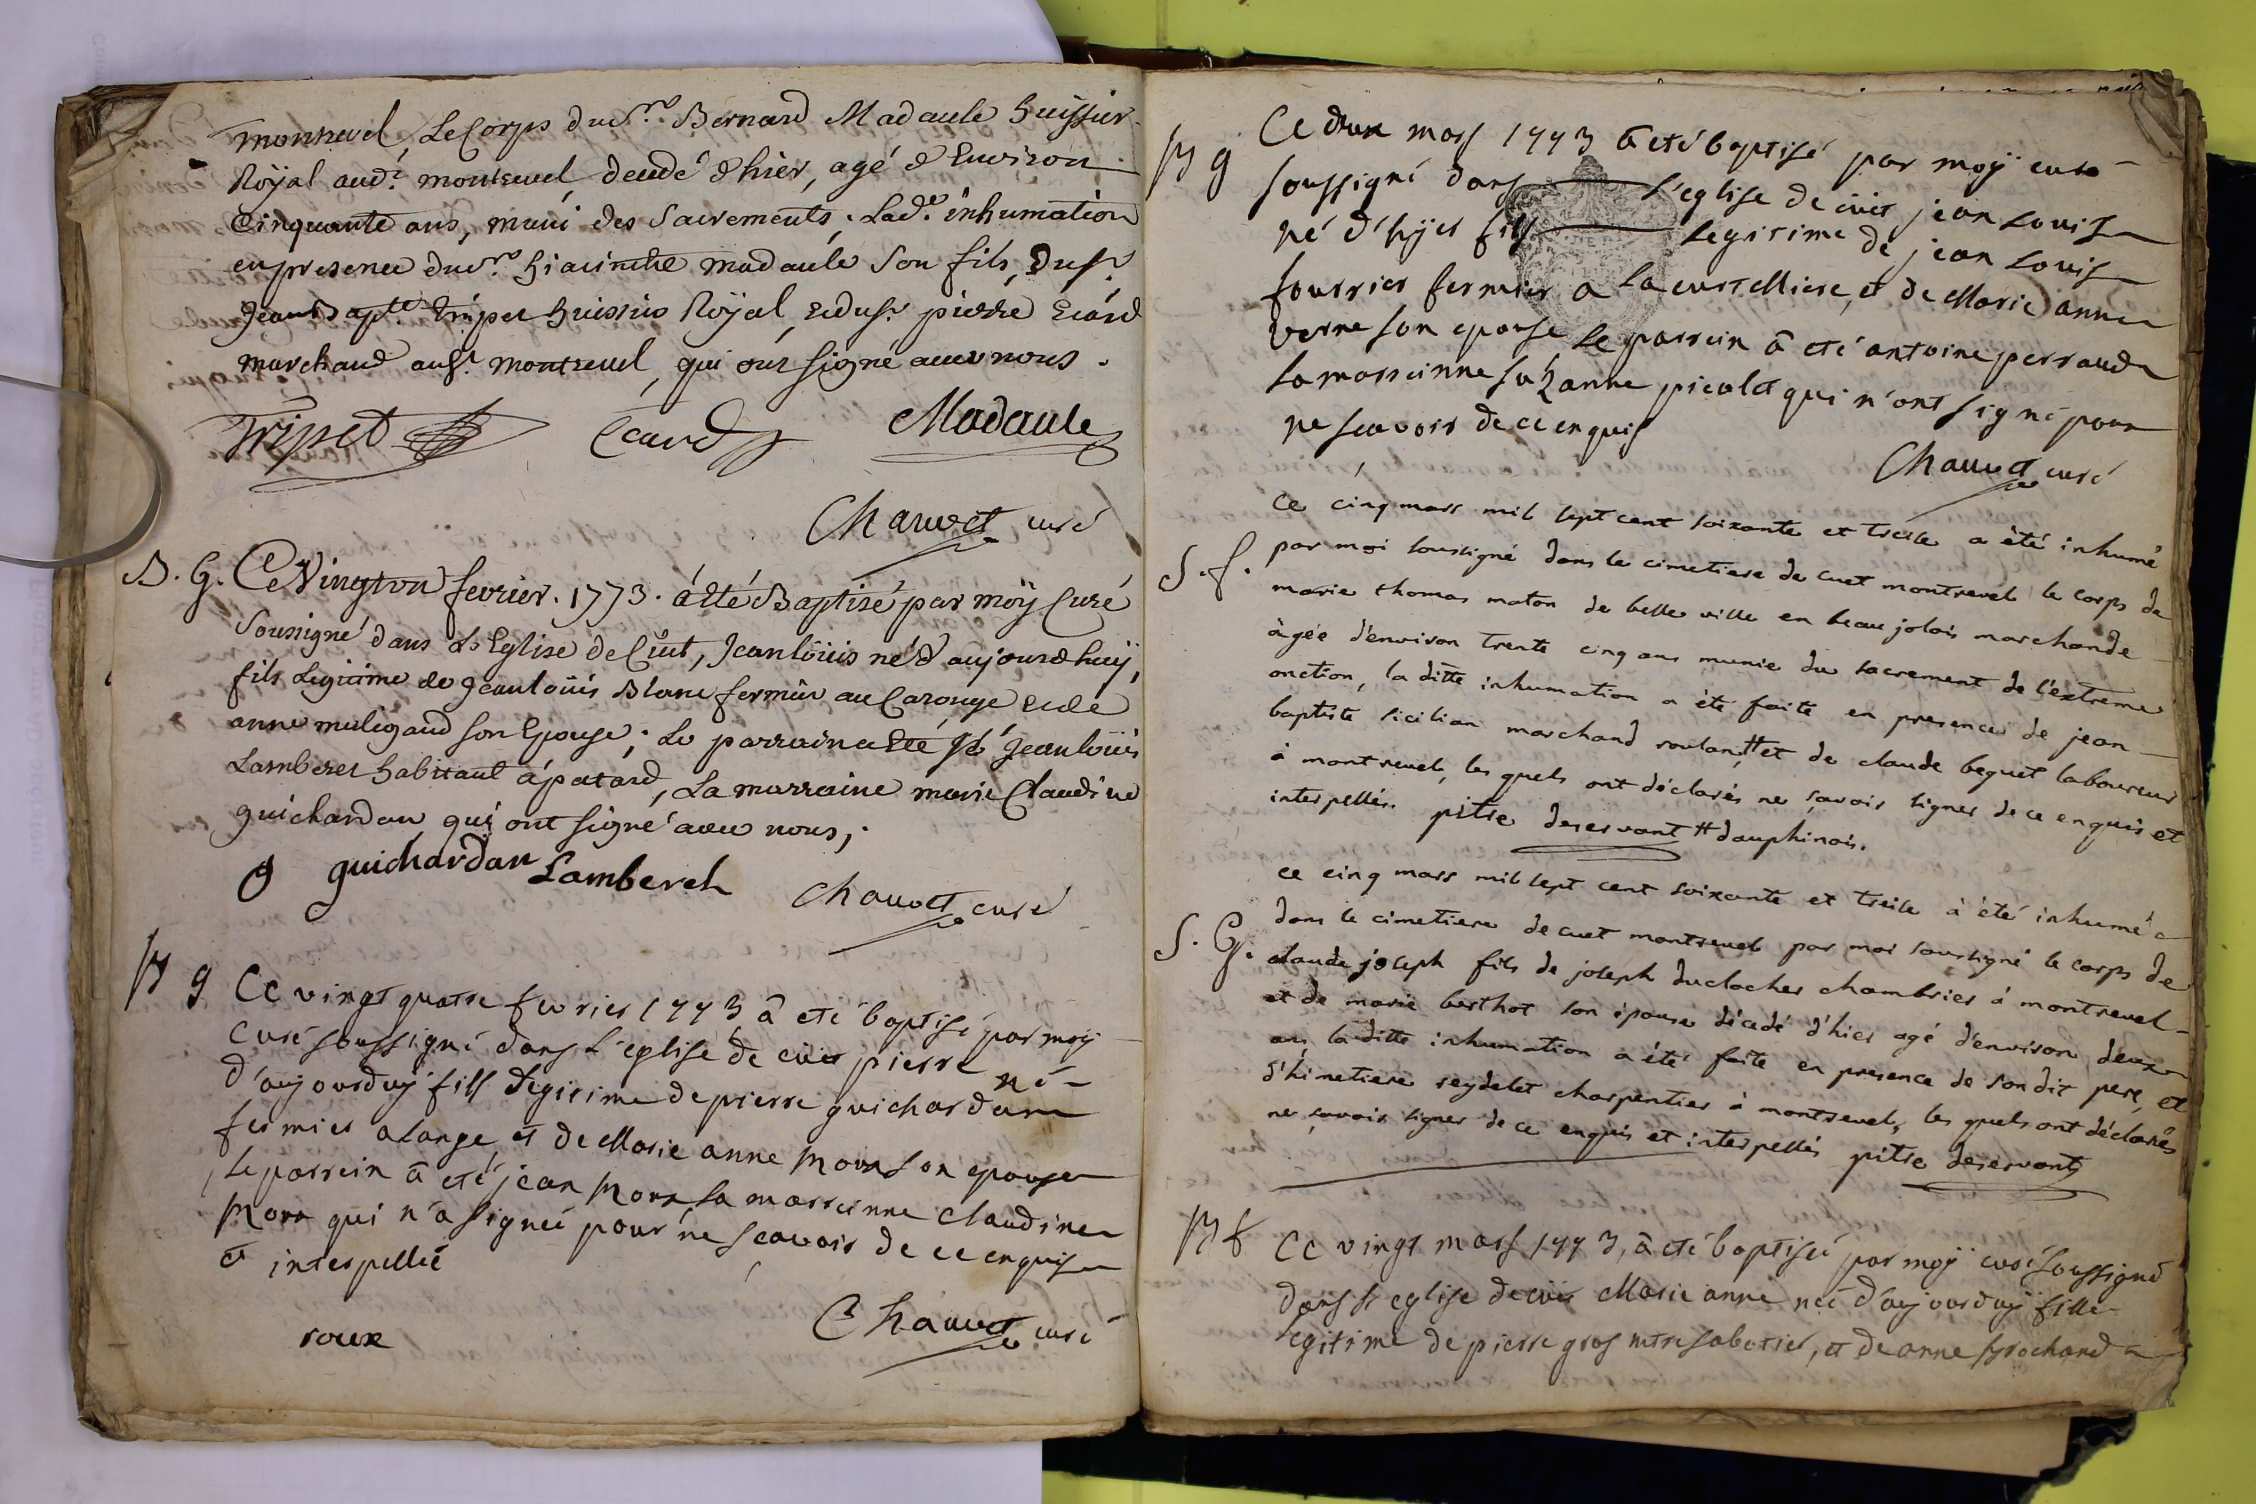 monrevel, Le Corps du sr. Bernard Madaule huissier
Röyal aud.t montrevel decedé d'hier, agé d'Environ
Cinquante ans, muni des Sacrements, Lade. inhumation
en presence du sr. hiacinthe madaule son fils, du sr.
Jean Bapte. Tripet huissier Röyal, et du sr. pierre Ecard
marchand auss.t montrevel, qui ont signé avec nous.
Tripet Ecard Madaule
Chauvet curé
B. G. Ce Vingt un fevrier. 1773. a été Baptisé par möy Curé
Soussigné dans L'Eglise de Cüet, Jean loüis né d'aujourdhuÿ,
fils Legitime de Jean loüis Blanc fermier au Carouge et de
anne muligaud son Epouse; Le parrain a Eté Jean loüis
Lamberet habitant à patard, La marraine marie Claudine
guichardan qui ont signé avec nous,.
guichardan Lamberet Chauvet curé
B g Ce vingt quatre fevrier 1773 â eté baptisé par moÿ
curé soussigné dans L'eglise de cüet pierre né
d'aujourduÿ fils Legitime de pierre guichardan
fermier a Lange, et de Marie anne Morn son epouse
Le parrein â eté jean Morn La marreinne claudine
Morn qui n'a signeé pour ne scavoir de ce enquise
et interpelleé
roux Chauvet curé
B g Ce deux mars 1773 â eté baptisé par moÿ curé
soussigné dans L'eglise de cüet jean Louis
né d'hÿer fils Legitime de jean Louis
fourrier fermier a La curtelliere, et de Marie anne
verne son epouse Le parrein â eté antoine perraud
La marreinne suzanne picolet qui n'ont signé pour
ne scavoir de ce enquis
Chauvet curé
ce cinq mars mil sept cent soixante et treize a été inhumé
S. f. par moi soussigné dans le cimetiere de cuet montrevel le corps de
marie thomas maton de belle ville en beaujolois marchande
àgée d'environ trente cinq ans munie du sacrement de l'extreme
onction, la ditte inhumation a été faite en presence de jean
baptiste sicilian marchand roulant, # et de claude beguet laboureur
à montrevel, les quels ont déclarés ne savoir signer de ce enquis et
interpellés. pitre deservant # dauphinois.
ce cinq mars mil sept cent soixante et treize à été inhumé
dans le cimetiere de cuet montrevel par moi soussigné le corps de
S. G. claude joseph fils de joseph duclocher chambrier à montrevel
et de marie berthot son épouse décedé d'hier agé d'environ deux
ans la ditte inhumation a été faite en presence de son dit pere, et
d'himetiere reydelet charpentier à montrevel, les quels ont déclarés
ne savoir signer de ce enquis et interpellés pitre deservant
B f Ce vingt mars 1773, â eté baptiseé par moÿ curé soussigné
dans L'eglise de cüet Marie anne neé d'aujourduÿ fille
Legitime de pierre gros mtre sabotier, et de anne brochand